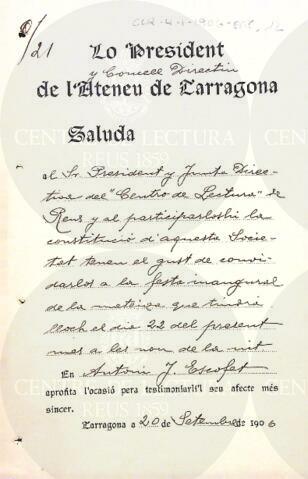 2/21
Lo President
y Concell Directiu
de l'Ateneu de Tarragona
Saluda
al Sr. President y Junta Direc-
tiva del "Centro de Lectura" de
Reus y al participarloshi la
constitució d'aquesta Socie-
tat tenen el gust de convi-
darlos a la festa inaugural
de la mateixa que tindrá
lloch el dia 22 del present
mes a les nou de la nit
En Antoni J. Escofet
aprofita l'ocasió pera testimoniarli'l seu afecte més
sincer.
Tarragona a 20 de Setembre de 1906
CENTRE DE LECTURA
REUS 1859